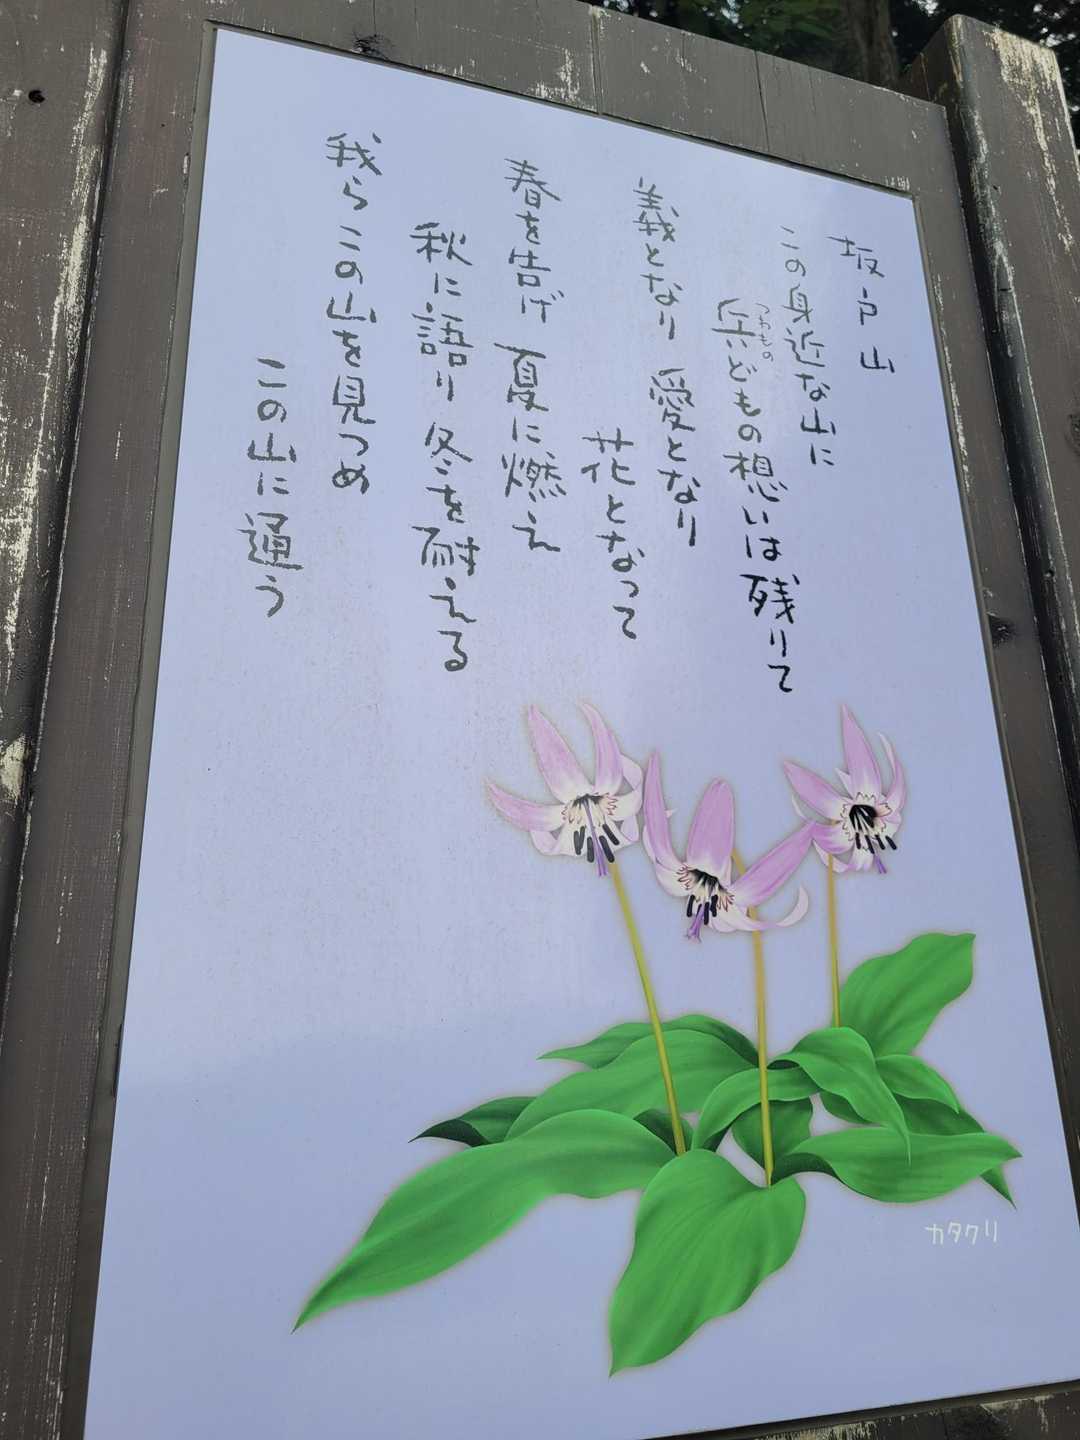 坂戸山
この身近な山に
兵どもの想いは残りて
つわもの
義となり 愛となり
花となって
春を告げ 夏に燃え
秋に語り 冬を耐える
我らこの山を見つめ
この山に通う
カタクリ